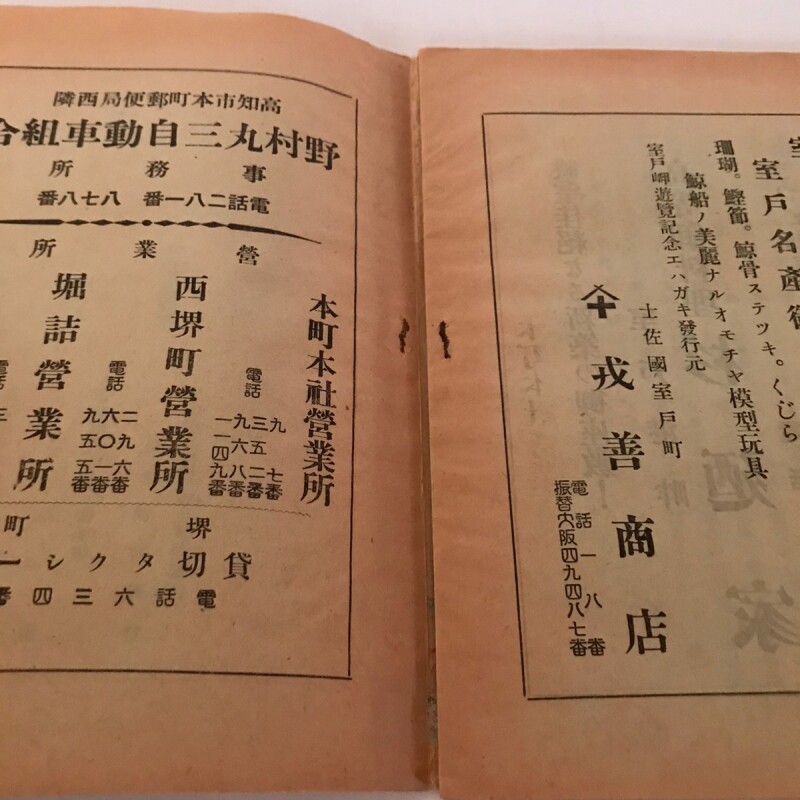 室戶名產
珊瑚。鰹節。鯨骨ステツキ。くじら
鯨船ノ美麗ナルオモチャ模型玩具
室戶岬遊覽記念エハガキ發行元
土佐國室戶町
戎善商店
電話一八番
振替大阪四九四八七番
高知市本町郵便局西隣
野村丸三自動車組合
事務所
電話二八一番 八七八番
營業所
本町本社營業所
電話
九七番
三五二番
九六八番
一一四九番
西堺町營業所
電話
二九六番
六〇一番
九五五番
堀詰營業所
電話
三
堺町
貸切タクシー
電話六三四番